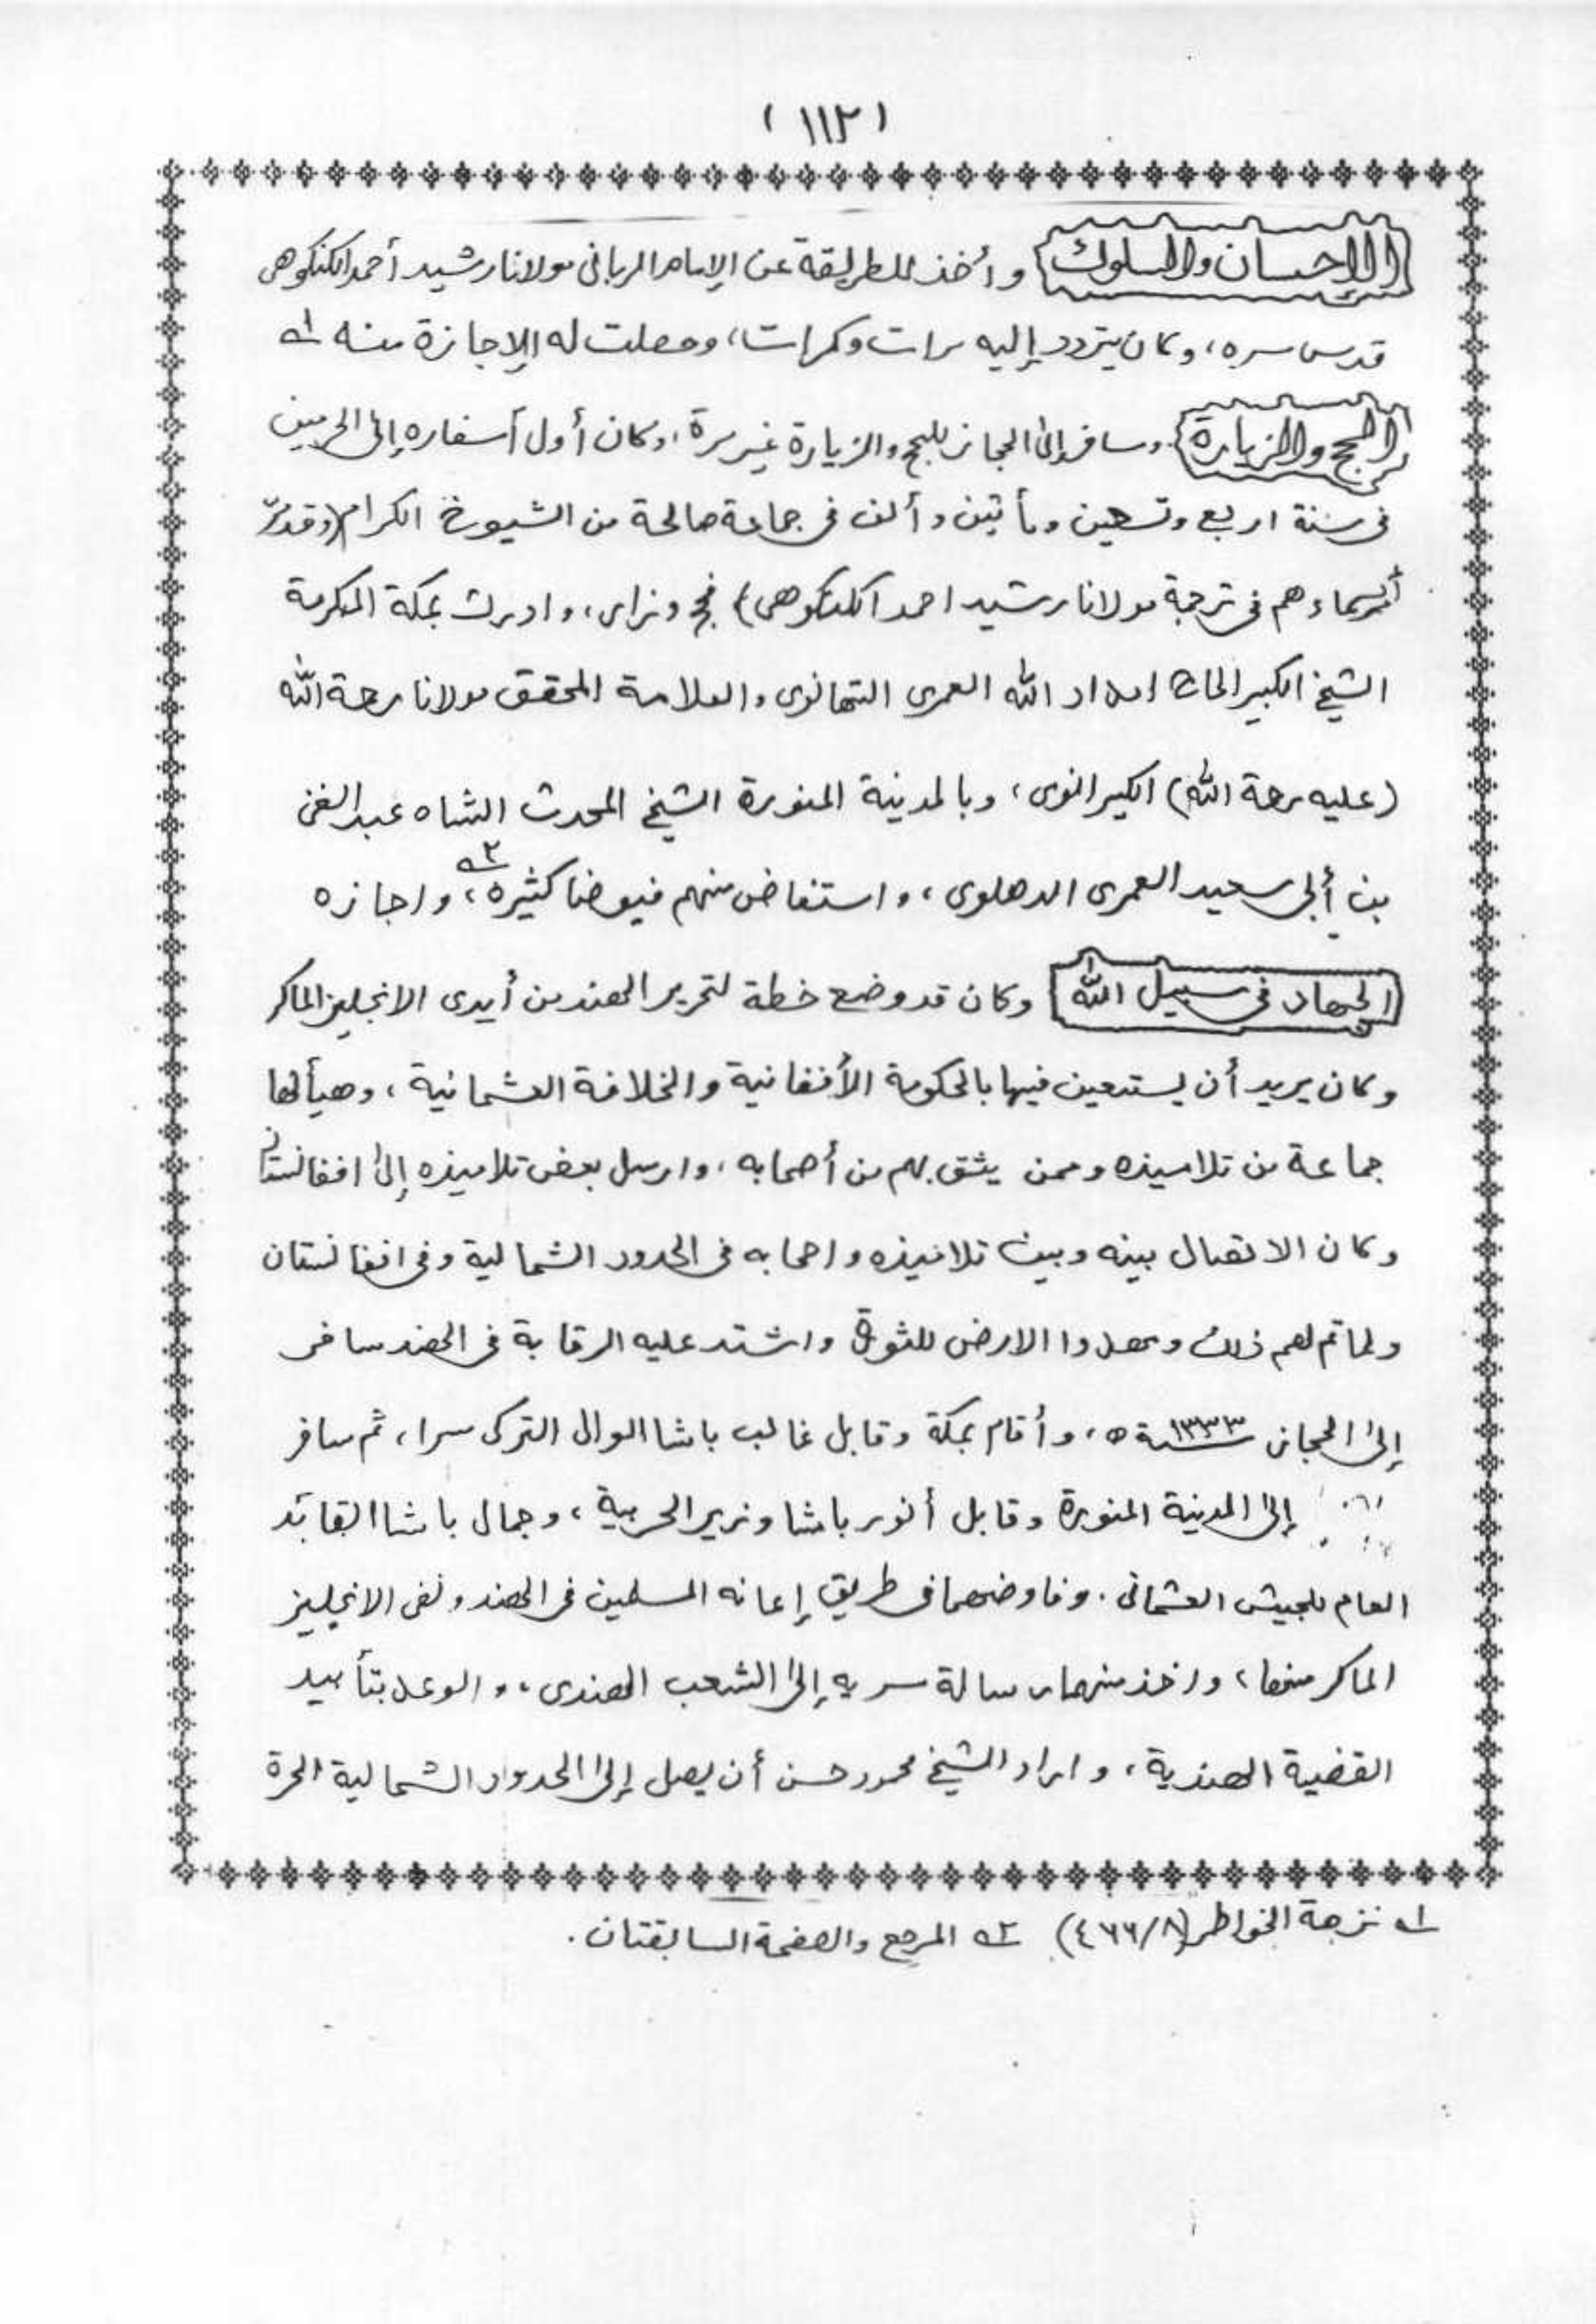 (١١٢)
الإحسان والسلوك وأخذ الطريقة عن الإمام الرباني مولانا رشيد أحمد الكنكوهى
قدس سره، وكان يتردد إليه مرات وكرات، وحصلت له الإجازة منه ١
الحج والزيارة وسافر إلى الحجاز للحج والزيارة غير مرة، وكان أول أسفاره إلى الحرمين
فى سنة اربع وتسعين ومأتين وألف فى جماعة صالحة من الشيوخ الكرام (وقد مرّ
أسماءهم فى ترجمة مولانا رشيد احمد الكنكوهى) فحج وزار، وادرك بمكة المكرمة
الشيخ الكبير الحاج امداد الله العمرى التهانوى والعلامة المحقق مولانا رحمة الله
(عليه رحمة الله) الكيرانوى، وبالمدينة المنورة الشيخ المحدث الشاه عبدالغنى
بن أبى سعيد العمرى الدهلوى، واستفاض منهم فيوضا كثيرة ٢، واجازه
الجهاد فى سبيل الله وكان قد وضع خطة لتحرير الهند من أيدى الانجليز الماكر
وكان يريد أن يستعين فيها بالحكومة الأفغانية والخلافة العثمانية، وهيأ لها
جماعة من تلاميذه وممن يثق بهم من أصحابه، وارسل بعض تلاميذه إلى افغانستان
وكان الاتصال بينه وبين تلاميذه واصحابه فى الحدود الشمالية وفى افغانستان
ولما تم لهم ذلك ومهدوا الارض للثورة واشتد عليه الرقابة فى الهند سافر
إلى الحجاز سنة ١٣٣٣ ه، وأقام بمكة وقابل غالب باشا الوالى التركى سرا، ثم سافر
إلى المدينة المنورة وقابل أنور باشا وزير الحربية، وجمال باشا القائد
العام للجيش العثمانى. وفاوضهما فى طريق إعانه المسلمين فى الهند ونفى الانجليز
الماكر منها، واخذ منهما رسالة سريه إلى الشعب الهندى، والوعد بتأييد
القضية الهندية، واراد الشيخ محمود حسن أن يصل إلى الحدود الشمالية الحرة
١ نزهة الخواطر (٨/٤٦٦) ٢ المرجع والصفحة السابقتان.